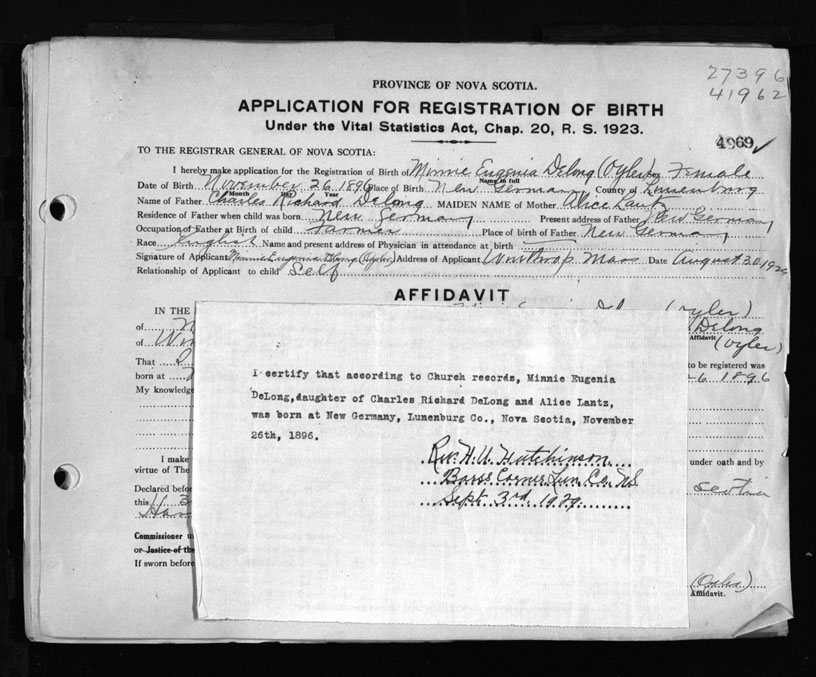 27396
41962
PROVINCE OF NOVA SCOTIA.
APPLICATION FOR REGISTRATION OF BIRTH
Under the Vital Statistics Act, Chap. 20, R. S. 1923.
4969
TO THE REGISTRAR GENERAL OF NOVA SCOTIA:
I hereby make application for the Registration of Birth of Minnie Eugenia DeLong (Oyler) Sex Female
Name in full
Date of Birth November 26 1896 Place of Birth New Germany County of Lunenburg
Month Day Year
Name of Father Charles Richard DeLong MAIDEN NAME of Mother Alice Lantz
Residence of Father when child was born New Germany Present address of Father New Germany
Occupation of Father at Birth of child Farmer Place of birth of Father New Germany
Race English Name and present address of Physician in attendance at birth
Signature of Applicant Minnie Eugenia DeLong (Oyler) Address of Applicant Winthrop Mass Date August 30, 1929
Relationship of Applicant to child Self
AFFIDAVIT
IN THE (Oyler)
of DeLong
Affidavit
of Win (Oyler)
That I to be registered was
born at 26 1896
My knowledge
I certify that according to Church records, Minnie Eugenia
DeLong, daughter of Charles Richard DeLong and Alice Lantz,
was born at New Germany, Lunenburg Co., Nova Scotia, November
26th, 1896.
Rev. H. U. Hutchinson
Barss Corner, Lun. Co., N.S.
Sept 3rd, 1929.
I make under oath and by
virtue of The
Declared before
this 3
Commissioner
or Justice of the
If sworn before
(Oyler)
Affidavit.